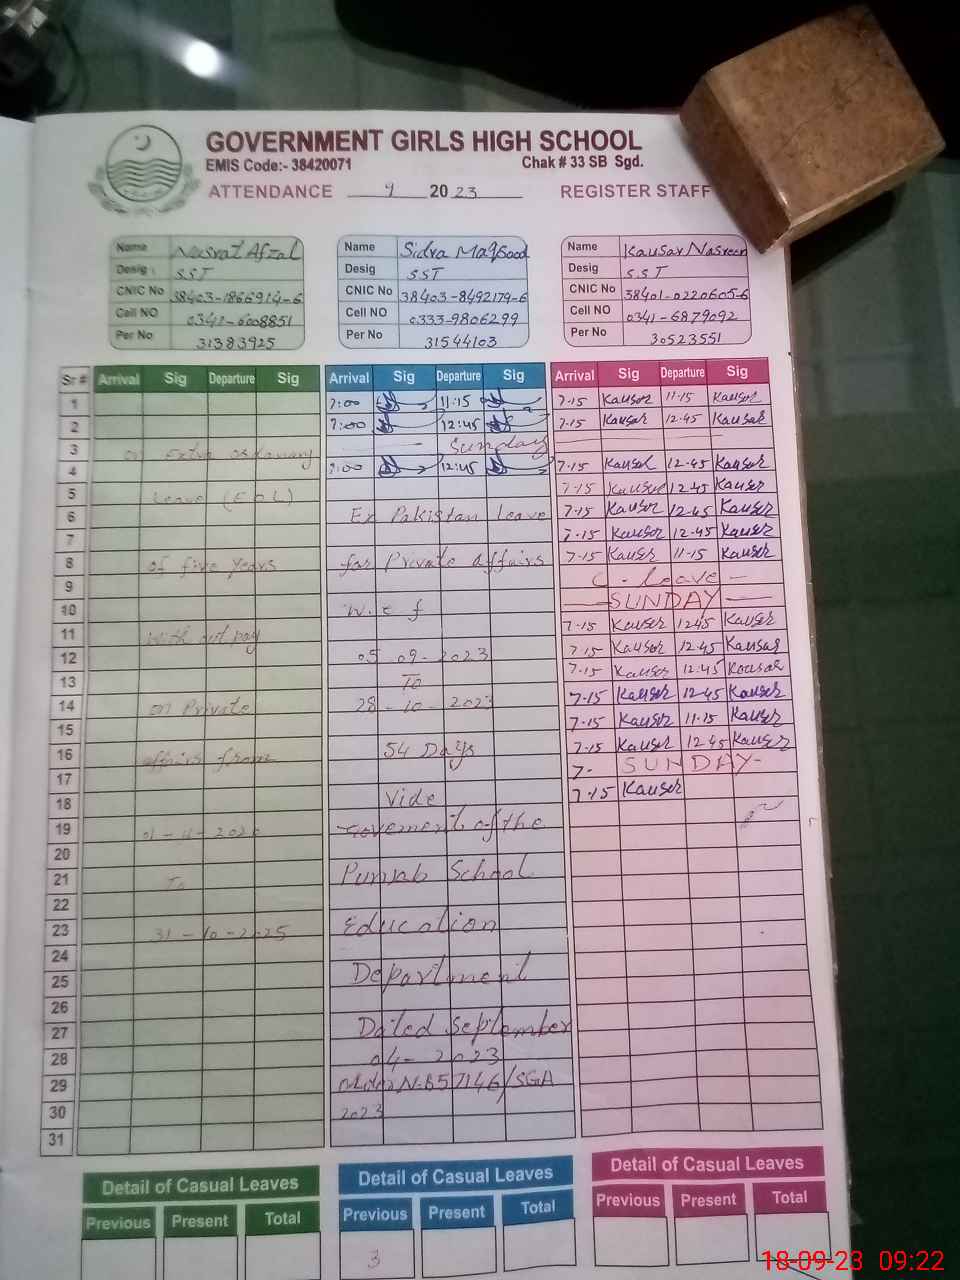 GOVERNMENT GIRLS HIGH SCHOOL
EMIS Code:- 38420071 Chak # 33 SB Sgd.
ATTENDANCE 9 2023 REGISTER STAFF
Name Nusrat Afzal Name Sidra Maqsood Name Kausar Nasreen
Desig SST Desig SST Desig S.S.T
CNIC No 38403-1866914-6 CNIC No 38403-8492179-6 CNIC No 38401-0220605-6
Cell NO 0341-6008851 Cell NO 0333-9806299 Cell NO 0341-6879092
Per No 31383925 Per No 31544103 Per No 30523551
Sr # Arrival Sig Departure Sig Arrival Sig Departure Sig Arrival Sig Departure Sig
1 7:00 11:15 7.15 Kausar 11.15 Kausar
2 7:00 12:45 7.15 Kausar 12.45 Kausar
3 on Extra ordanary Sunday
4 7:00 12:45 7.15 Kausar 12.45 Kausar
5 Leave (EOL) 7.15 Kausar 12.45 Kausar
6 Ex Pakistan Leave 7.15 Kausar 12.45 Kausar
7 7.15 Kausar 12.45 Kausar
8 of five years for Private affairs 7.15 Kausar 11.15 Kausar
9 C-leave-
10 w.e.f SUNDAY
11 With out pay 7.15 Kausar 12.45 Kausar
12 05-09-2023 7.15 Kausar 12.45 Kausar
13 To 7.15 Kausar 12.45 Kausar
14 on Private 28-10-2023 7.15 Kausar 12.45 Kausar
15 7.15 Kausar 11.15 Kausar
16 affairs from 54 Days 7.15 Kausar 12.45 Kausar
17 7- SUNDAY-
18 Vide 7.15 Kausar
19 Goverment of the
20
21 To Punjab School
22
23 31-10-2025 Education
24
25 Department
26
27 Dated September
28 04-2023
29 /SGA
30 2023
31
Detail of Casual Leaves Detail of Casual Leaves Detail of Casual Leaves
Previous Present Total Previous Present Total Previous Present Total
3
18-09-23 09:22